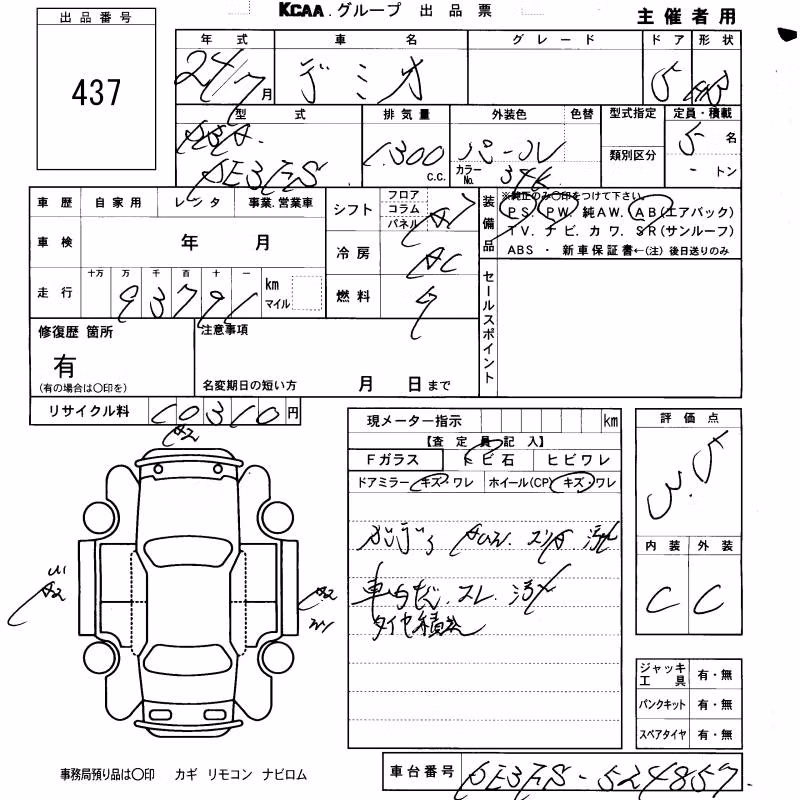 KCAA.グループ 出品票
主催者用
出品番号
437
年式 車名 グレード ドア 形状
24/7月 デミオ 5 HB
型式 排気量 外装色 色替 型式指定 定員・積載
DBA 1,300 c.c. パール 類別区分 5名
DE3FS カラーNo. 34K - トン
車歴 自家用 レンタ 事業.営業車
シフト フロア コラム パネル A
車検 年 月
冷房 AC
走行 十万 万 千 百 十 一 km マイル
93791
燃料
装備品 ※純正のみ○印をつけて下さい。
PS. PW. 純AW. AB(エアバック)
TV. ナビ. カワ. SR(サンルーフ)
ABS ・ 新車保証書←(注) 後日送りのみ
セールスポイント
修復歴 箇所
有
(有の場合は○印を)
注意事項
名変期日の短い方 月 日まで
リサイクル料 10310円
現メーター指示 km
【査定員記入】
Fガラス トビ石 ヒビワレ
ドアミラー キズ・ワレ ホイール(CP) キズ・ワレ
汚れ
スレ. 汚れ
タイヤ積込
評価点
3.5
内装 外装
C C
A2
A2
A2
ジャッキ工具 有・無
パンクキット 有・無
スペアタイヤ 有・無
事務局預り品は○印 カギ リモコン ナビロム
車台番号 DE3FS-524857